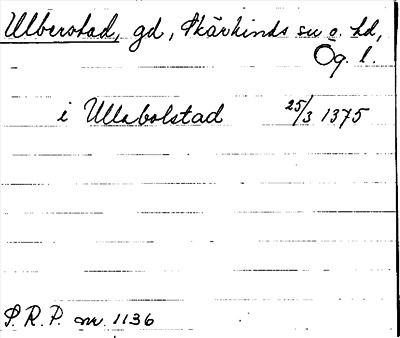 Ulberstad, gd, Skärkinds sn o. hd,
Ög. l.
i Ullabolstad 25/3 1375
S.R.P. nr. 1136